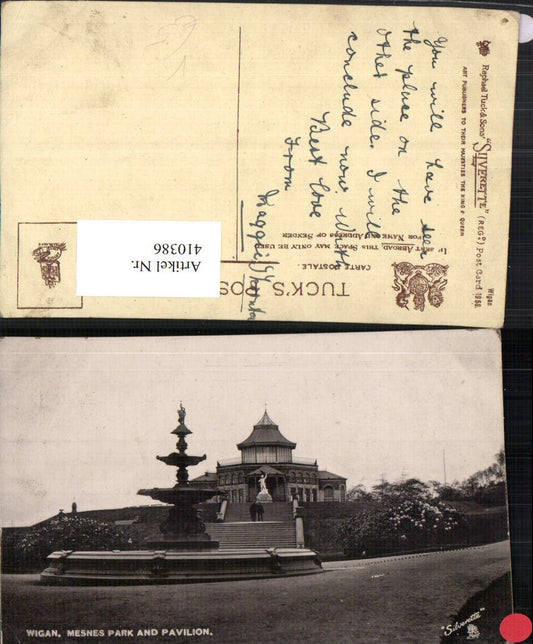 Raphael Tuck & Sons' "SILVERETTE" (REGD) Post Card 1658. Wigan
ART PUBLISHERS TO THEIR MAJESTIES THE KING & QUEEN
TUCK'S POS
CARTE POSTALE.
IF SENT ABROAD, THIS SPACE MAY ONLY BE USED
FOR NAME AND ADDRESS OF SENDER
You will have seen
the place on the
other side. I will
conclude now With
Best Love
From
Maggie
Artikel Nr.
410386
WIGAN, MESNES PARK AND PAVILION.
"Silverette"